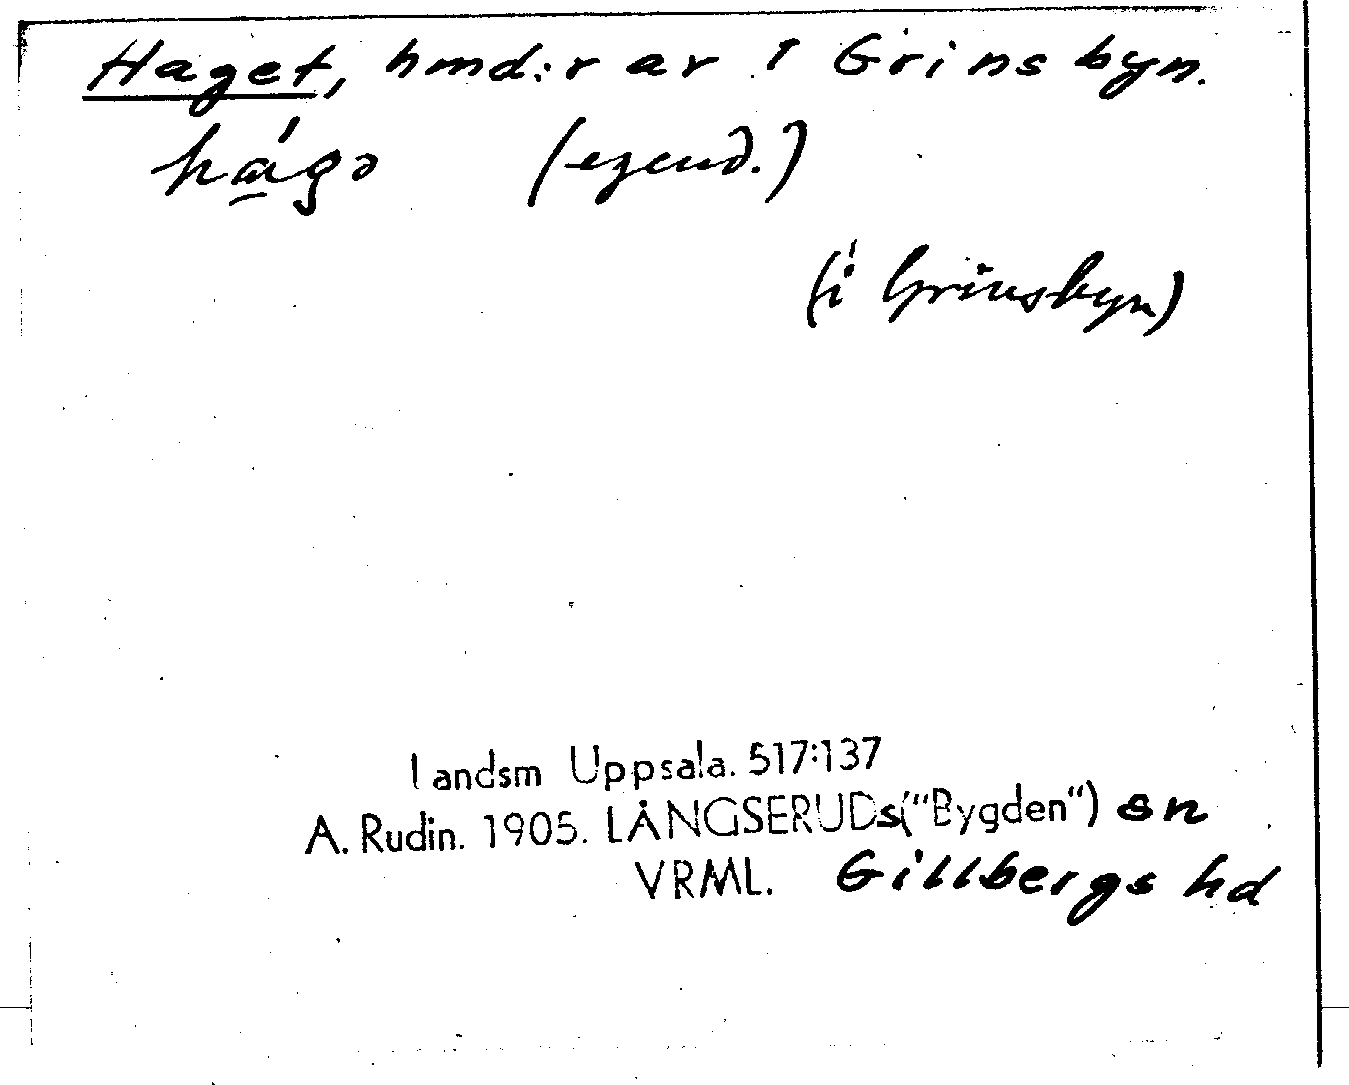 Haget, hmd:r av 1 Grinsbyn.
hága (egend.)
(i Grinsbyn)
Landsm Uppsala. 517:137
A. Rudin. 1905. LÅNGSERUDs("Bygden") sn
VRML. Gillbergs hd